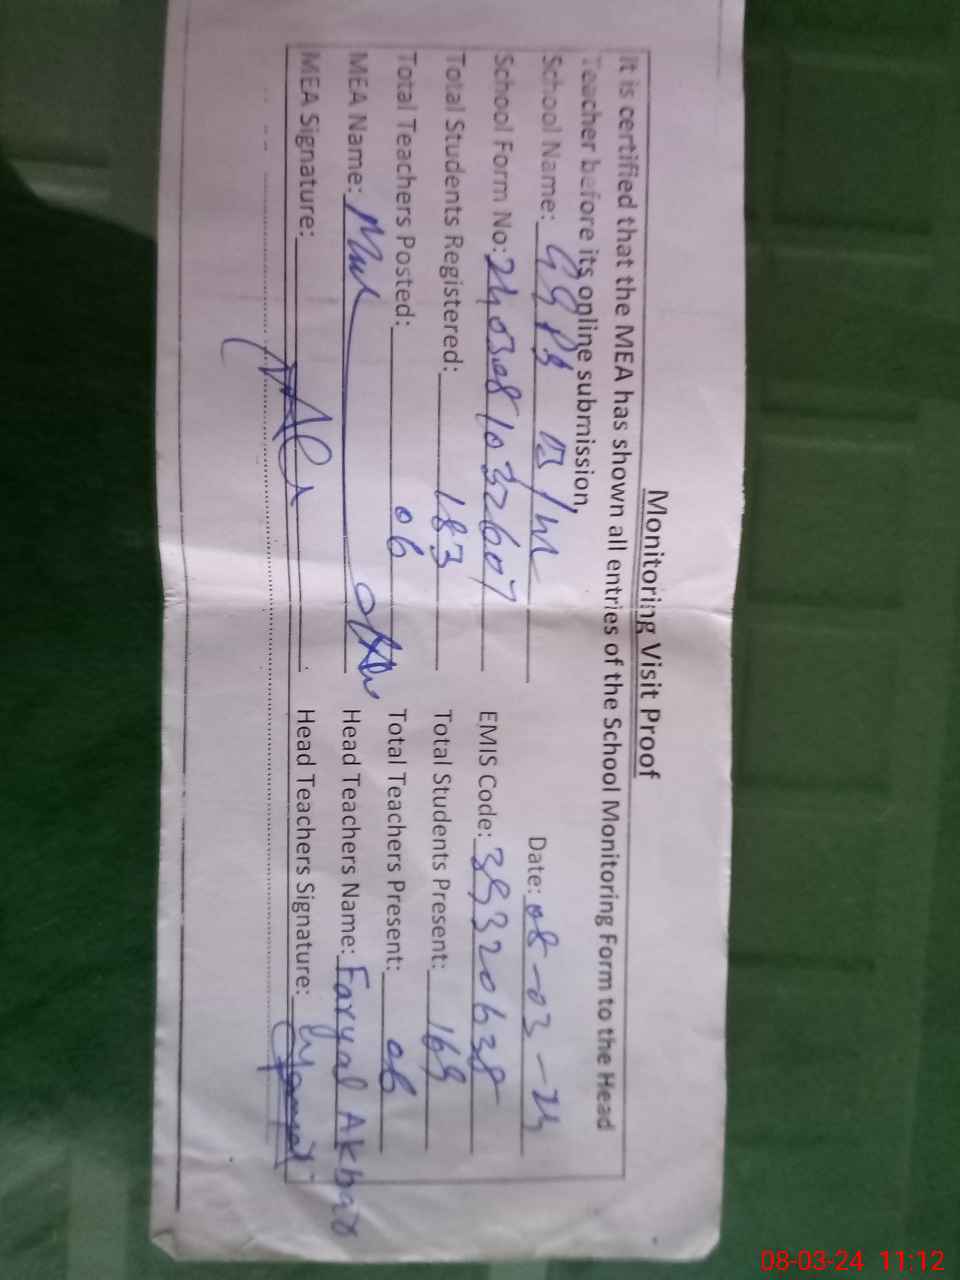 Monitoring Visit Proof
It is certified that the MEA has shown all entries of the School Monitoring Form to the Head
Teacher before its online submission,
School Name: GGPS Date: 08-03-24
School Form No: 2403081032607 EMIS Code: 39320638
Total Students Registered: 183 Total Students Present: 169
Total Teachers Posted: 06 Total Teachers Present: 06
MEA Name: Head Teachers Name: Faryal Akbar
MEA Signature: Head Teachers Signature:
08-03-24 11:12